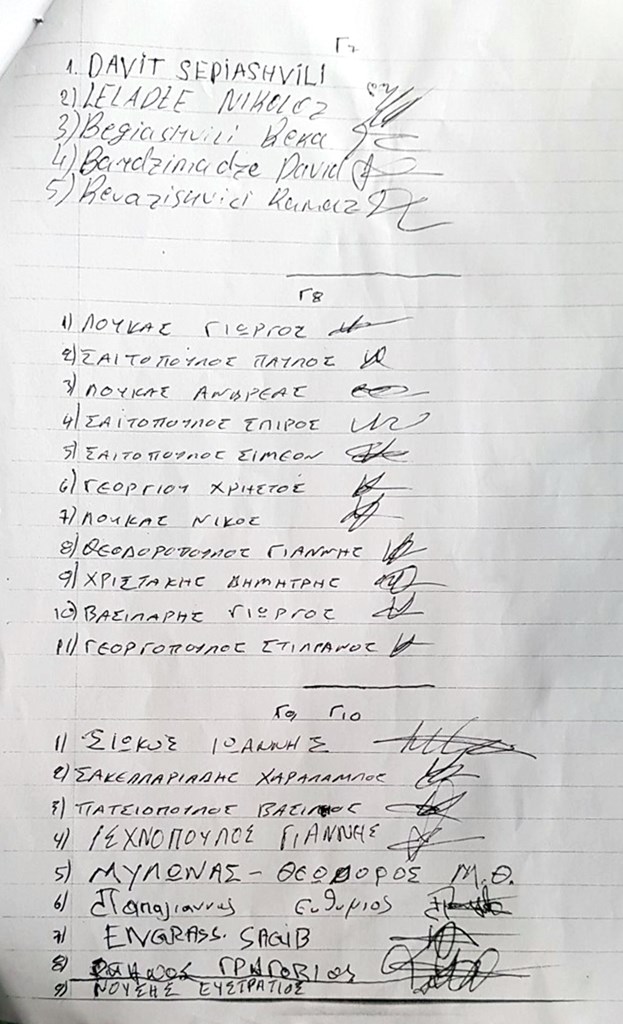 Γ7
1. DAVIT SEPIASHVILI
2) LELADZE NIKOLOZ
3) Begiashvili Beka
4) Bandzinadze David
5) Revazishvili Ramaz
Γ8
1) ΛΟΥΚΑΣ ΓΙΩΡΓΟΣ
2) ΣΑΙΤΟΠΟΥΛΟΣ ΠΑΥΛΟΣ
3) ΛΟΥΚΑΣ ΑΝΔΡΕΑΣ
4) ΣΑΙΤΟΠΟΥΛΟΣ ΣΠΙΡΟΣ
5) ΣΑΙΤΟΠΟΥΛΟΣ ΣΙΜΕΟΝ
6) ΓΕΟΡΓΙΟΥ ΧΡΗΣΤΟΣ
7) ΛΟΥΚΑΣ ΝΙΚΟΣ
8) ΘΕΟΔΟΡΟΠΟΥΛΟΣ ΓΙΑΝΝΗΣ
9) ΧΡΙΣΤΑΚΗΣ ΔΗΜΗΤΡΗΣ
10) ΒΑΣΙΛΑΡΗΣ ΓΙΩΡΓΟΣ
11) ΓΕΟΡΓΟΠΟΥΛΟΣ ΣΤΙΛΙΑΝΟΣ
Γ9 Γ10
1) ΣΙΩΚΟΣ ΙΩΑΝΝΗΣ
2) ΣΑΚΕΛΛΑΡΙΑΔΗΣ ΧΑΡΑΛΑΜΠΟΣ
3) ΠΑΤΣΙΟΠΟΥΛΟΣ ΒΑΣΙΛΙΟΣ
4) ΙΣΧΝΟΠΟΥΛΟΣ ΓΙΑΝΝΗΣ
5) ΜΥΛΩΝΑΣ - ΘΕΟΔΩΡΟΣ Μ.Θ.
6) Παπαγιαννης Ευθυμιος
7) ENGRASS. SAGIB
8) ΓΡΗΓΟΡΙΟΣ
9) ΝΟΥΣΗΣ ΕΥΣΤΡΑΤΙΟΣ